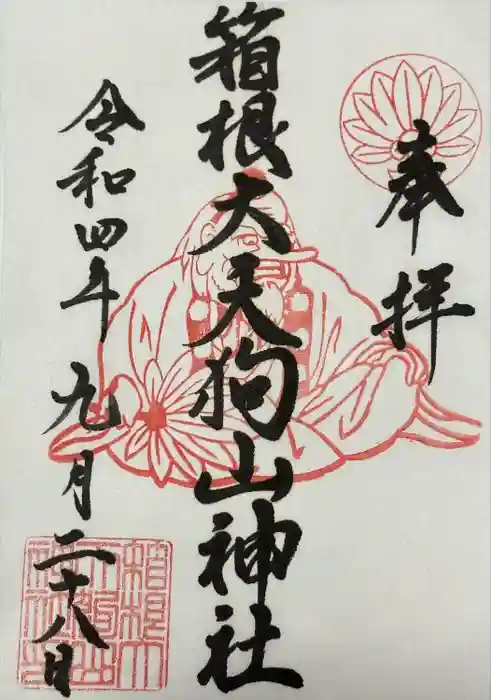 奉拝
箱根大天狗山神社
令和四年
九月二十八日